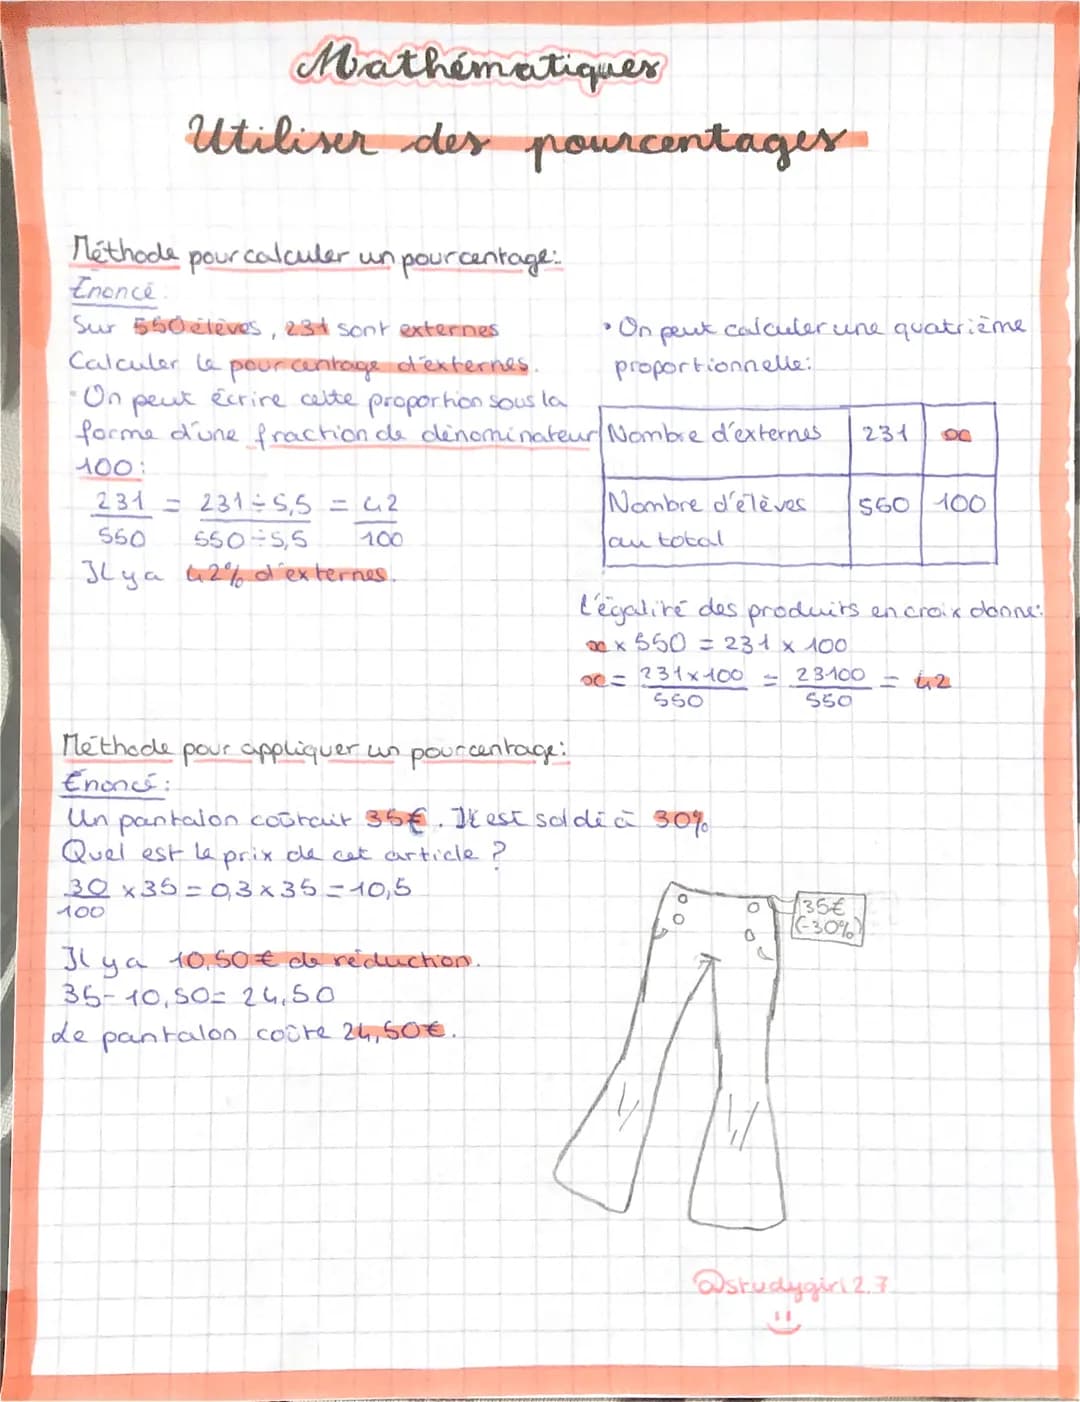 Mathématiques
Utiliser des pourcentages
Méthode pour calculer un pourcentage:
Énoncé
Sur 550 élèves, 231 sont externes
Calculer le pourcentage d'externes.
• On peut écrire cette proportion sous la
forme d'une fraction de dénominateur
100:
231/550 = 231÷5,5/550÷5,5 = 42/100
Il y a 42% d'externes.
• On peut calculer une quatrième
proportionnelle:
Nombre d'externes 231 x
Nombre d'élèves 550 100
au total
L'égalité des produits en croix donne:
x × 550 = 231 × 100
x = 231×100/550 = 23100/550 = 42
Méthode pour appliquer un pourcentage:
Énoncé:
Un pantalon coûtait 35€. Il est soldé à 30%
Quel est le prix de cet article ?
30/100 × 35 = 0,3 × 35 = 10,5
Il y a 10,50€ de réduction.
35-10,50= 24,50
Le pantalon coûte 24,50€.
35€
(-30%)
@studygirl2.7